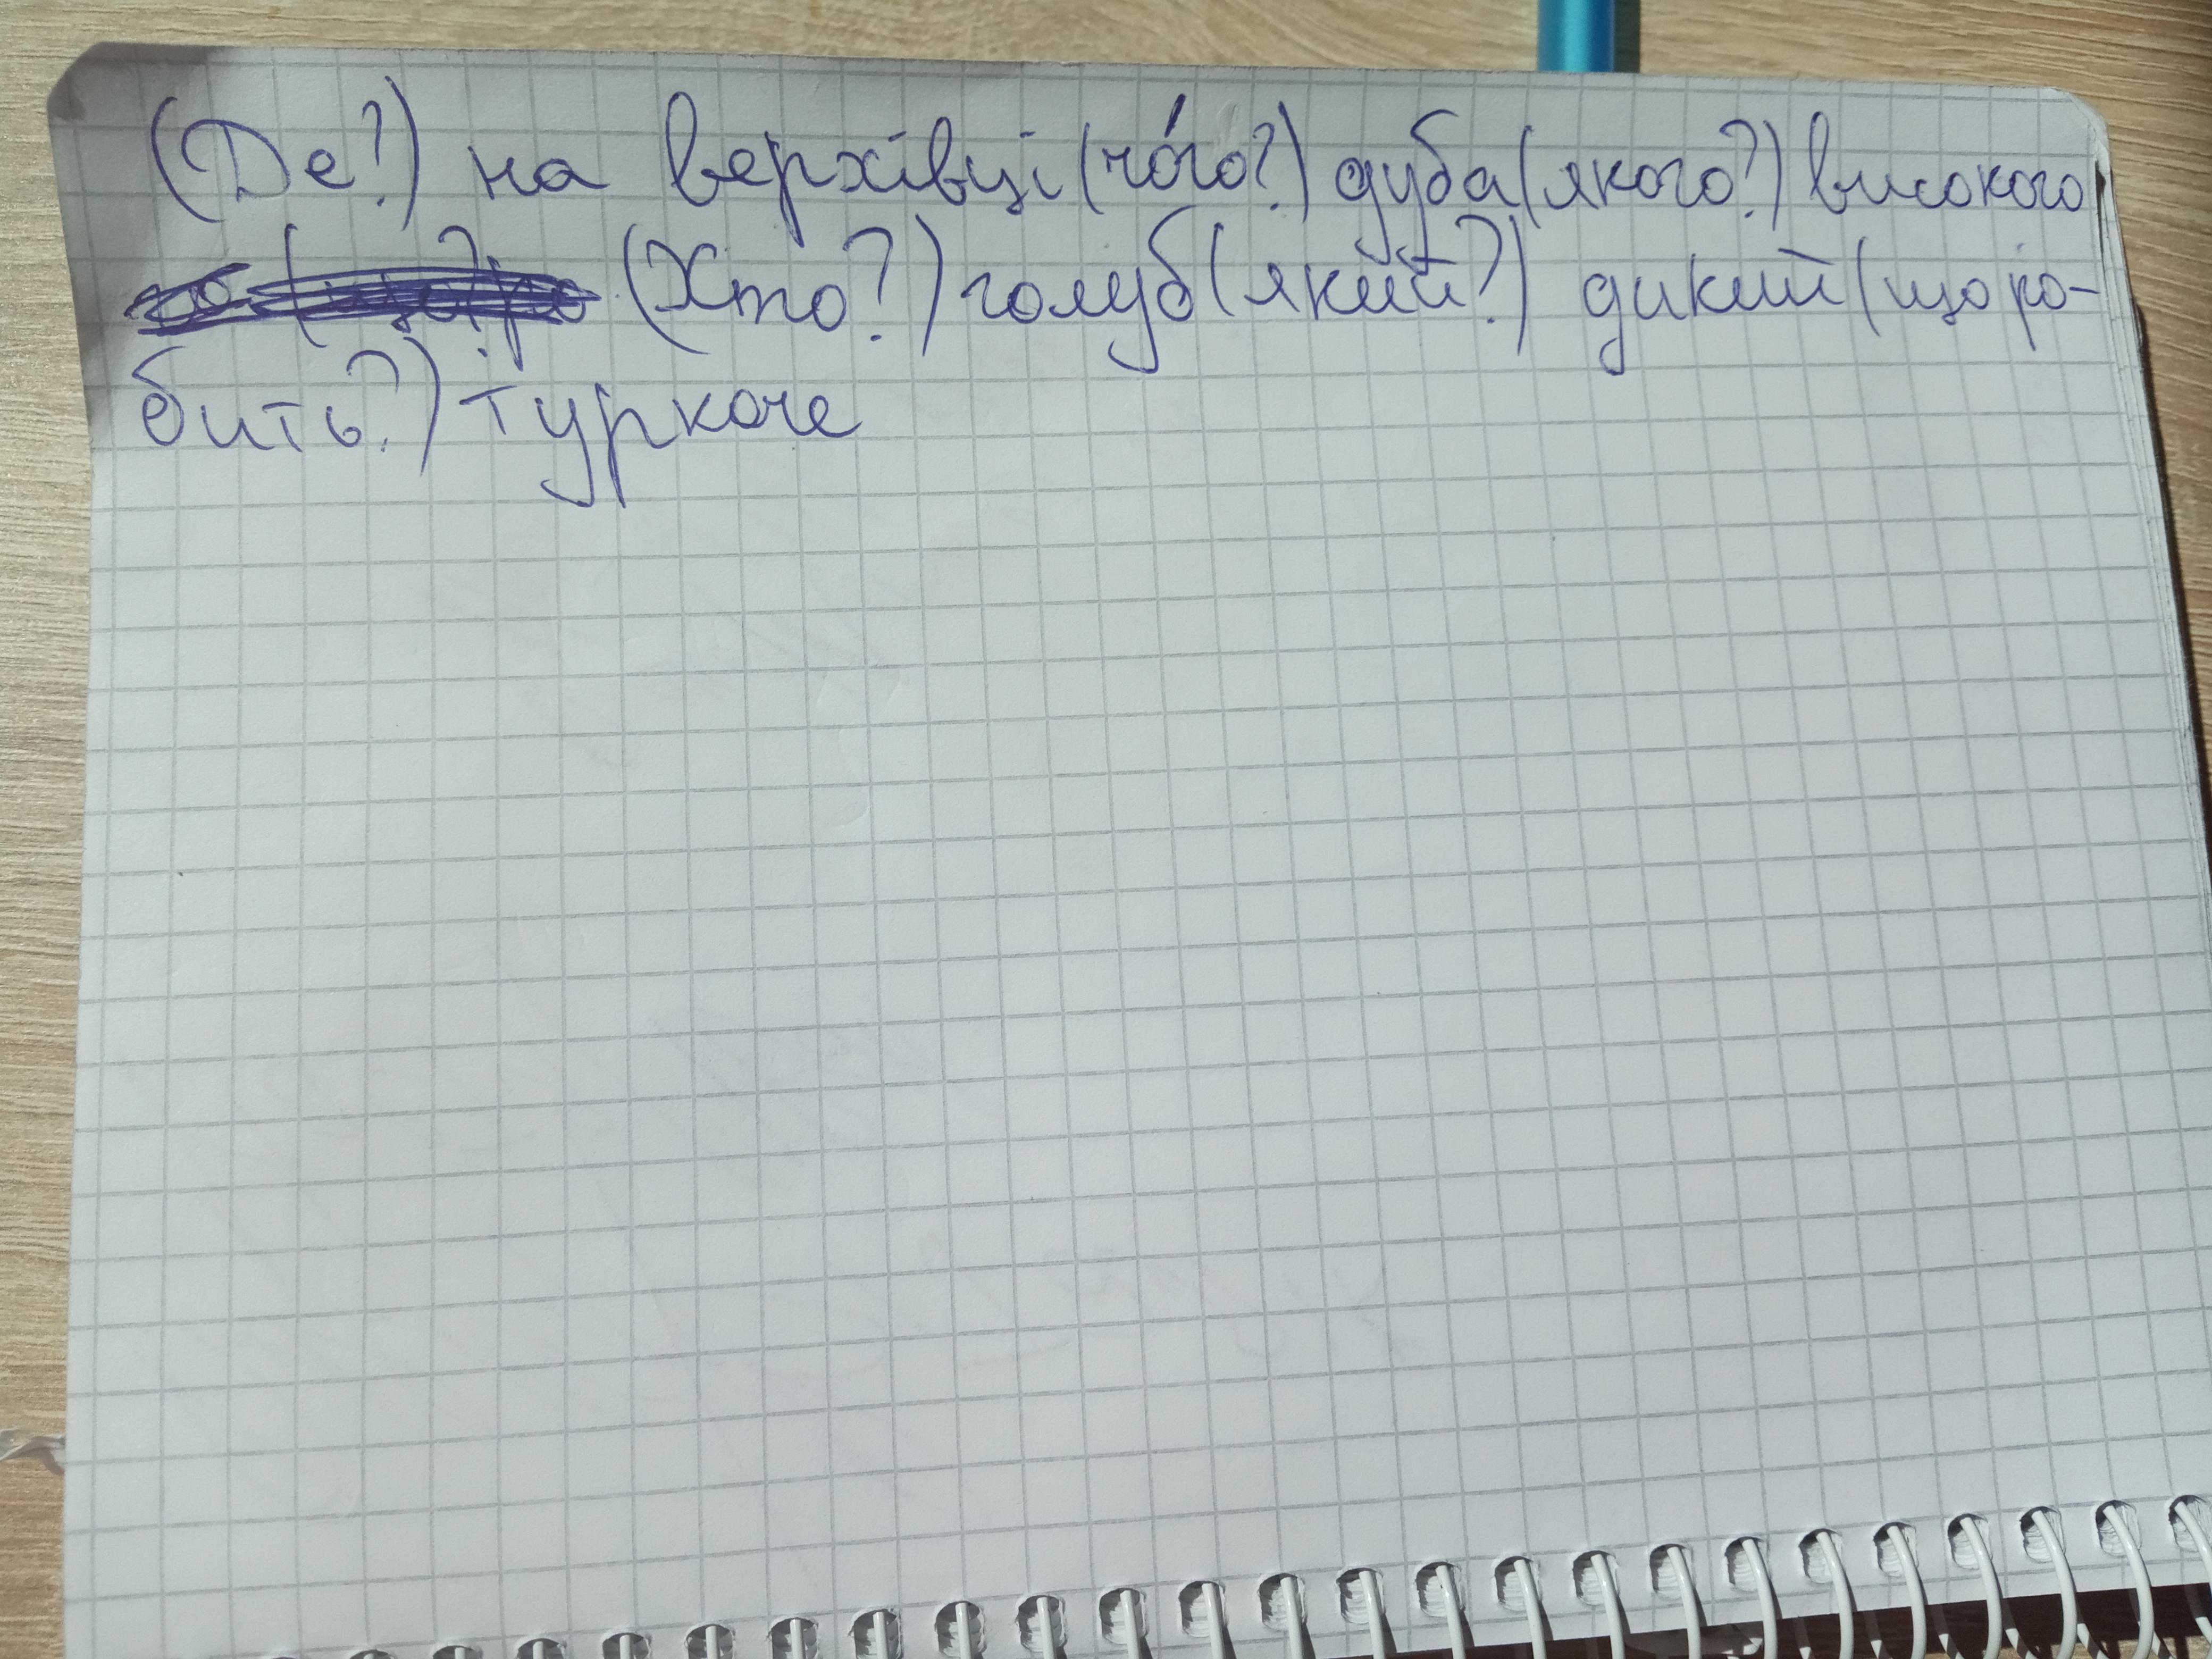 (Де?) на верхівці (чо́го?) дуба (якого?) високого
(Хто?) голуб (який?) дикий (що ро-
бить?) туркоче